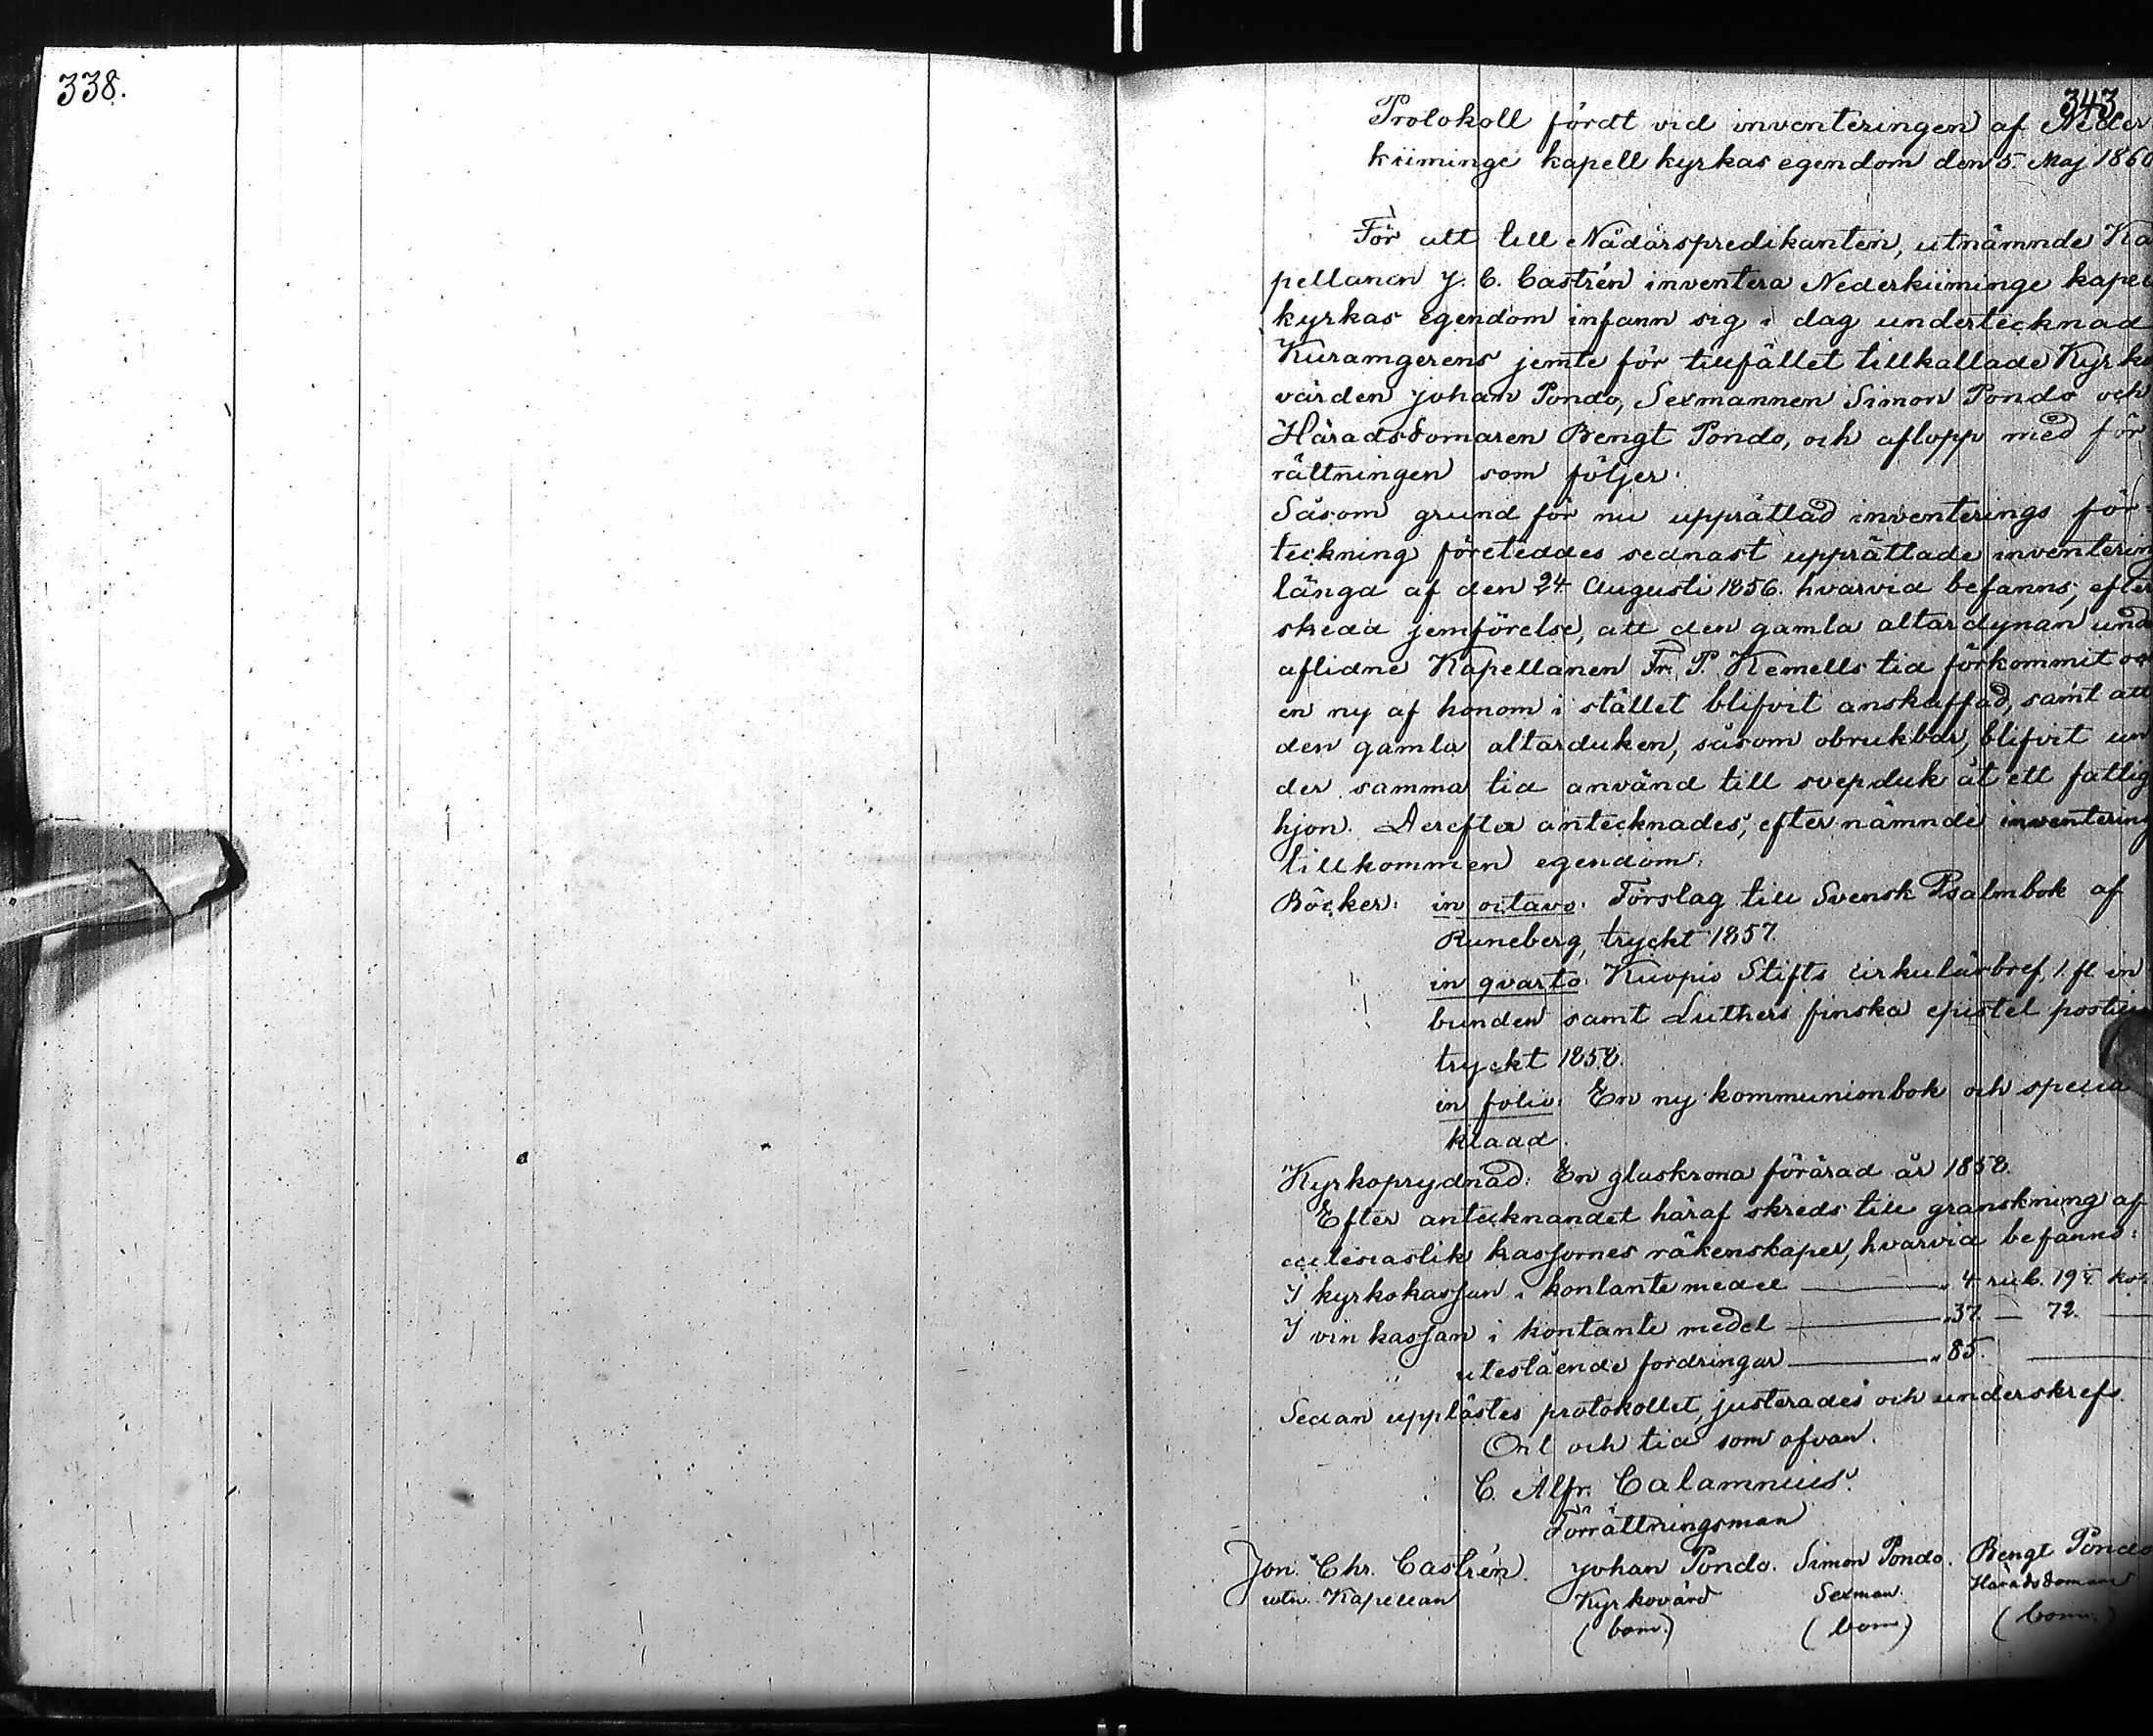 338.
343
Protokoll fördt vid inventeringen af Neder
kiiminge kapell kyrkas egendom den 5. Maj 1860
För att till Nådårspredikanten, utnämnde Ka
pellanen J. C. Castrén inventera Nederkiiminge kapell
kyrkas egendom infann sig i dag undertecknad
Kuramgerens jemte för tillfället tillkallade Kyrko
värden Johan Pondo, Sexmannen Simon Pondo och
Häradsdomaren Bengt Pondo, och aflopp med för
rättningen som följer:
Såsom grund för nu upprättad inventerings för
teckning företeddes sednast upprättade inventering
längd af den 24 Augusti 1856. hvarvid befanns, efter
skedd jemförelse, att den gamla altardynan und
aflidne Kapellanen Fr. P. Kemells tid förkommit och
en ny af honom i stället blifvit anskaffad, samt att
den gamla altarduken, såsom obrukbar, blifvit un
der samma tid använd till svepduk åt ett fattig
hjon. Derefter antecknades, efter nämnde inventering
tillkommen egendom:
Böcker: in octavo: Förslag till Svensk Psalmbok af
Runeberg, tryckt 1857.
in qvarto: Kuopio Stifts cirkulärbref, 1. fl in
bunden samt Luthers finska epistel postilla
tryckt 1858.
in folio: En ny kommunionbok och specia
klaad.
Kyrkoprydnad: En glaskrona förärad år 1858.
Efter antecknandet häraf skreds till granskning af
ecclesiastik kassornes räkenskaper, hvarvid befanns:
I kyrkokassan i kontante medel — „ 4 rub. 19 kop.
I vin kassan i kontante medel — „ 37. — 72. —
„ utestående fordringar — „ 85. —
Sedan upplästes protokollet, justerades och underskrefs.
Ort och tid som ofvan.
C. Alfr. Calamnius.
Förrättningsman
Joh. Chr. Castrén. Johan Pondo. Simon Pondo. Bengt Pondo
utn. Kapellan Kyrkovärd Sexman. Häradsdomare
(bom.) (bom.) (bom.)